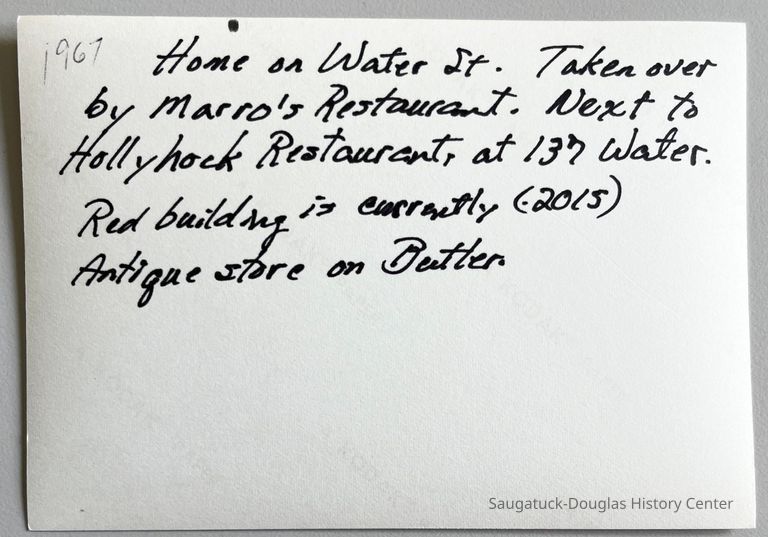 1967
Home on Water St. Taken over
by Marro's Restaurant. Next to
Hollyhock Restaurant, at 137 Water.
Red building is currently (2015)
Antique store on Butler.
Saugatuck-Douglas History Center